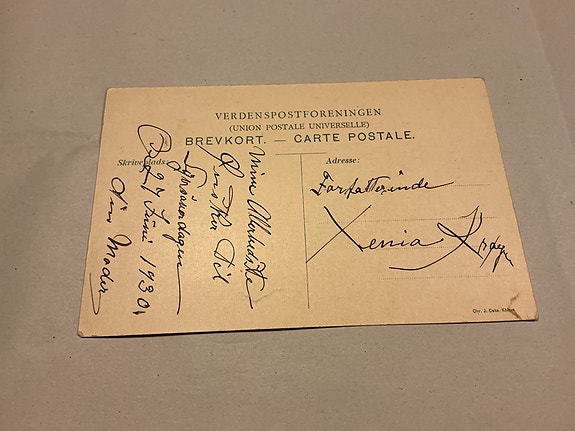 VERDENSPOSTFORENINGEN
(UNION POSTALE UNIVERSELLE)
BREVKORT. — CARTE POSTALE.
Skriveplads
Mine
Ønsker til
Fødselsdagen
27 Juni 1930
din Moder
Adresse:
Forfatterinde
Xenia
Chr. J. Cato. Kbhvn.